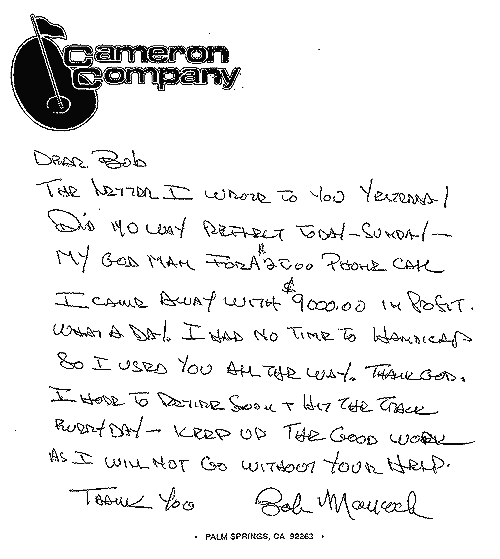 Cameron
Company
DEAR BOB
THE LETTER I WROTE TO YOU YESTERDAY
DID NO WAY REFLECT TODAY - SUNDAY -
MY GOD MAN FOR A $2500 PHONE CALL
I CAME AWAY WITH $9000.00 IN PROFIT.
WHAT A DAY. I HAD NO TIME TO HANDICAP
SO I USED YOU ALL THE WAY. THANK GOD.
I HOPE TO RETIRE SOON + HIT THE TRACK
EVERYDAY - KEEP UP THE GOOD WORK
AS I WILL NOT GO WITHOUT YOUR HELP.
THANK YOU Bob
• PALM SPRINGS, CA 92263 •